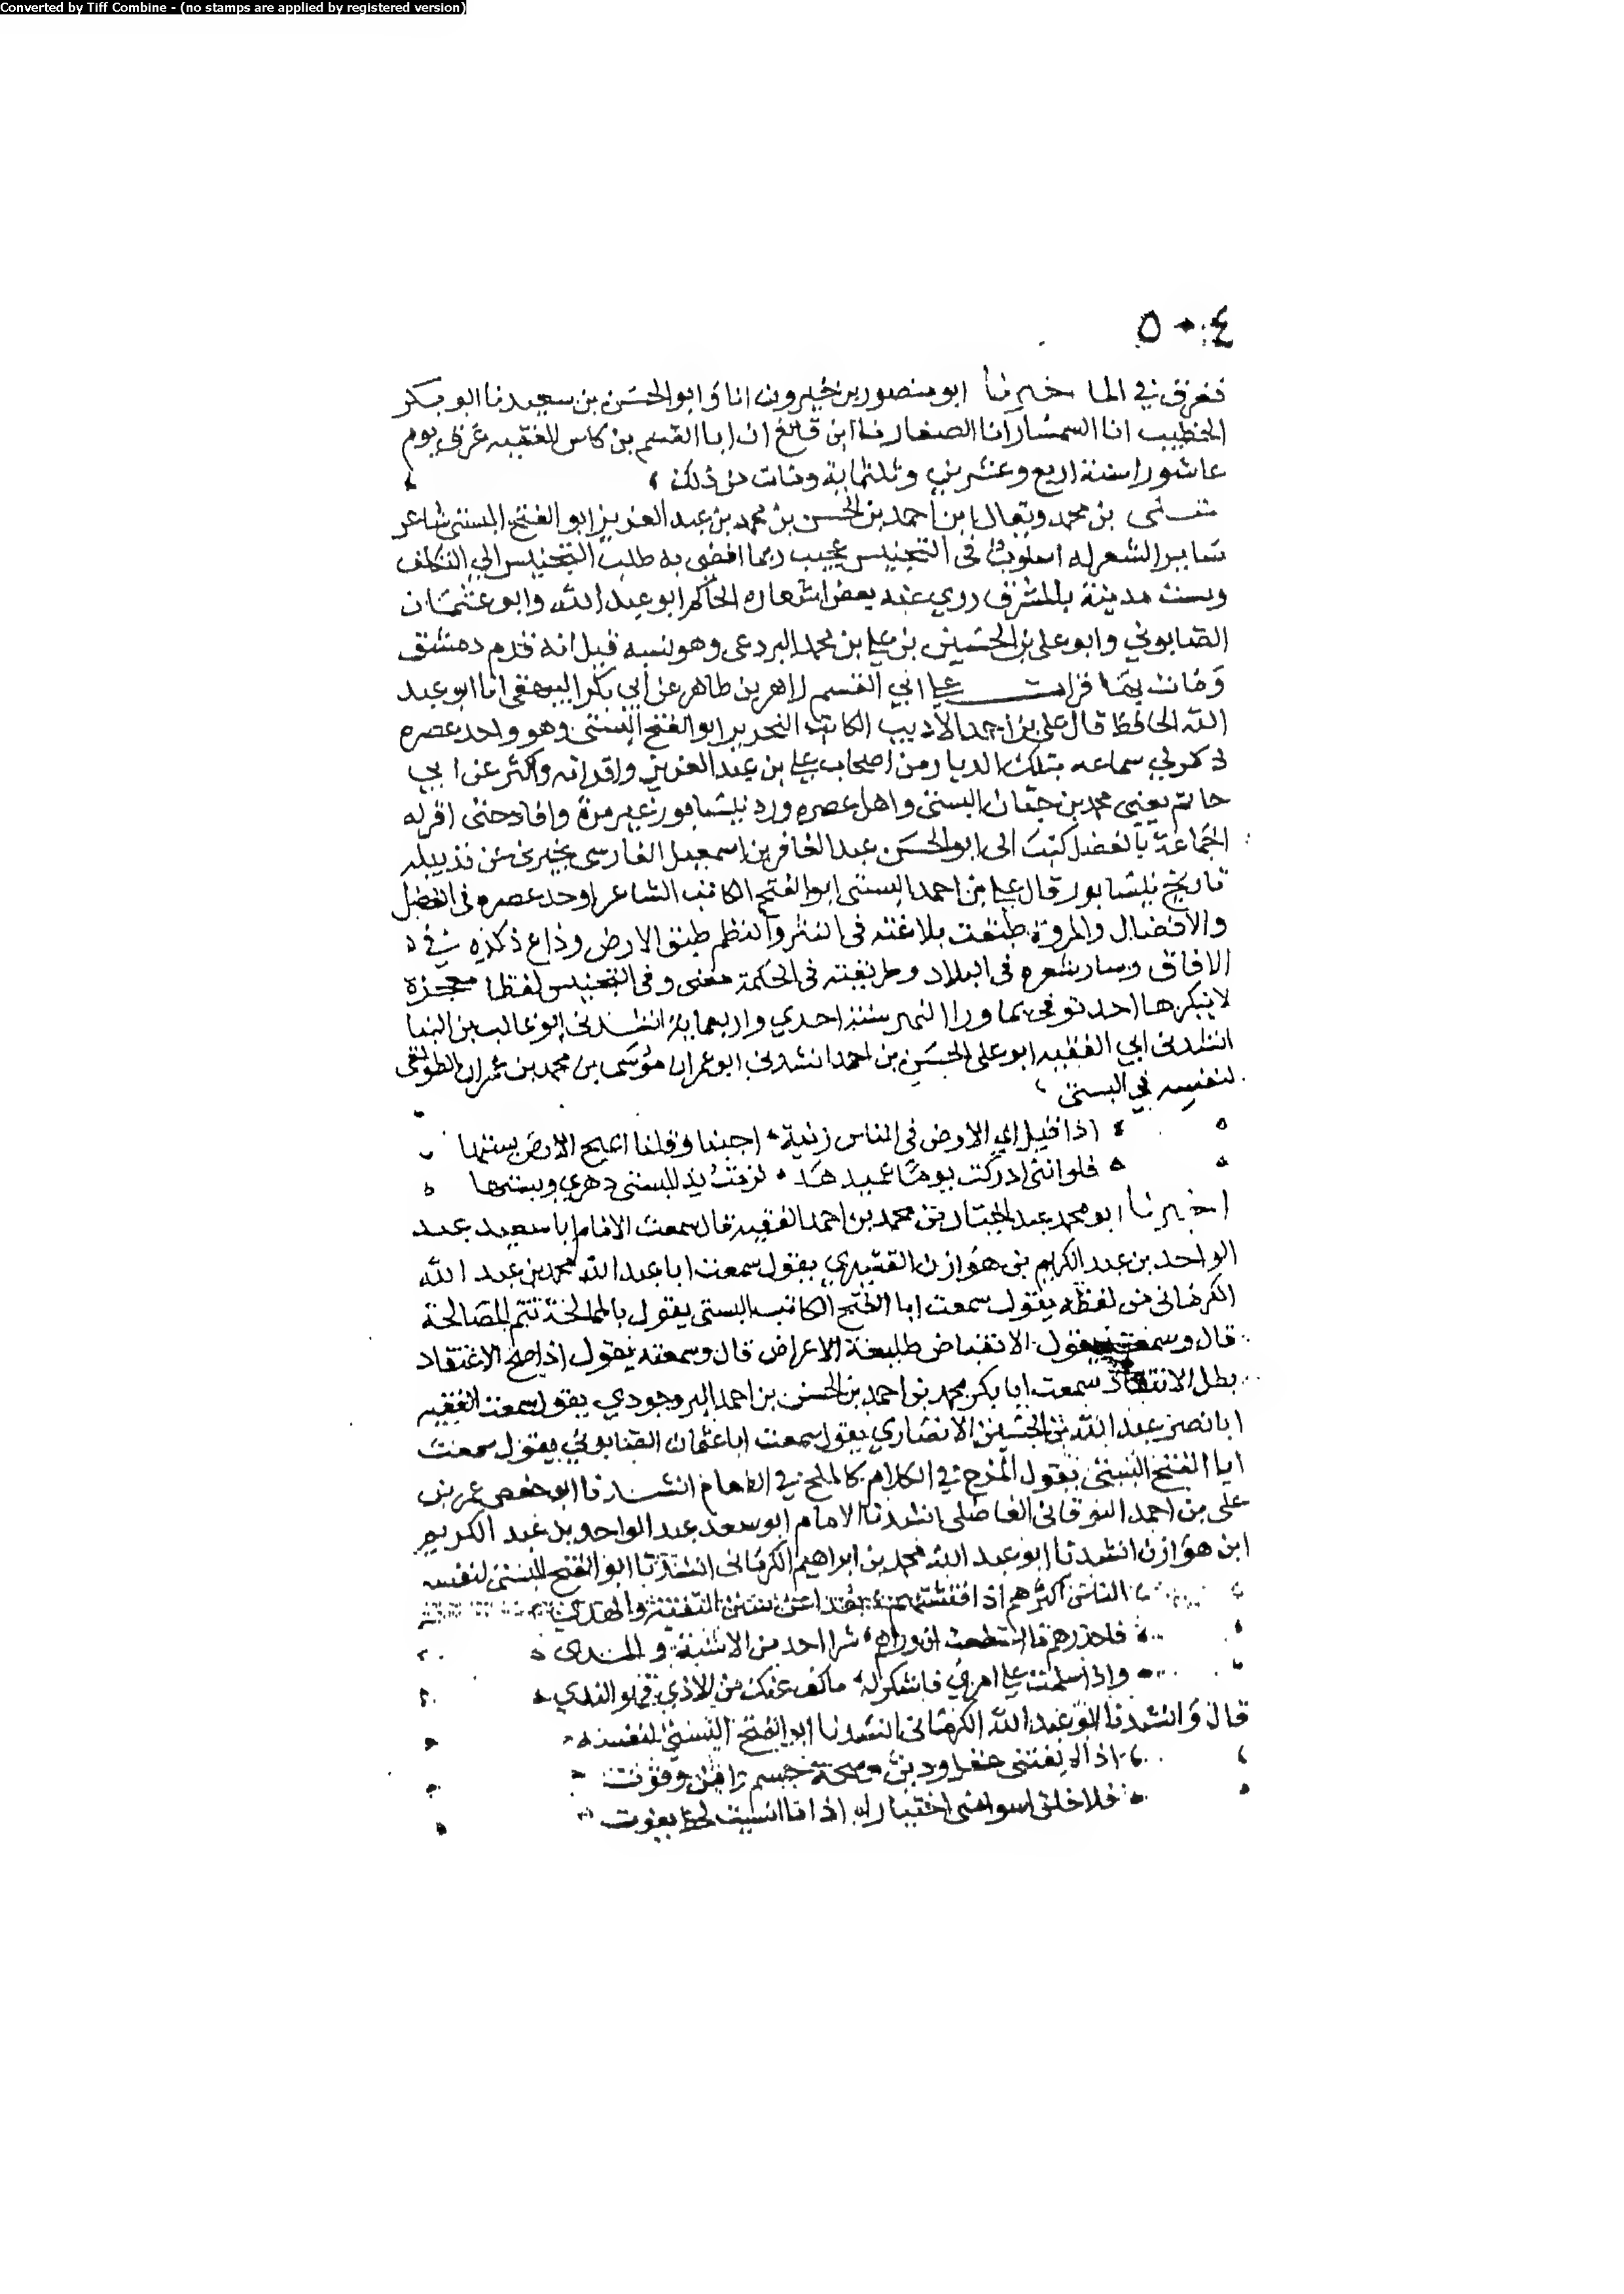 Converted by Tiff Combine - (no stamps are applied by registered version)
٥٠٤
فغرق في الما اخبرنا ابو منصور بن خيرون انا وابو الحسن بن سعيد نا ابو بكر
الخطيب انا السمسار انا الصفار نا ابن قانع ان ابا القسم بن كاس الفقيه غرق يوم
عاشورا سنة اربع وعشرين وثلثماية ومات من ذلك
بن محمد ويقال ابن احمد بن الحسن بن محمد بن عبد العزيز ابو الفتح البستي شاعر
ساير الشعر له اسلوب في التجنيس عجيب ربما افضى به طلب التجنيس الي التكلف
وبست مدينة بالمشرق روي عنه بعض اشعاره الحاكم ابو عبد الله وابو عثمان
الصابوني وابو علي بن الحسين بن علي بن محمد البردعي وهو نسبه قيل انه قدم دمشق
قرات علي ابي القسم زاهر بن طاهر عن ابي بكر البيهقي انا ابو عبد
الله الحافظ قال علي بن احمد الاديب الكاتب النحرير ابو الفتح البستي وهو واحد عصره
ذكر لي سماعه بتلك الديار من اصحاب علي بن عبد العزيز واقرانه واكثر عن ابي
حاتم يعني محمد بن حبان البستي واهل عصره ورد نيسابور غير مرة وافاد حتى اقر له
الجماعة بالفضل كتب الى ابو الحسن عبد الغافر بن اسمعيل الفارسي يخبرني في تذييله
تاريخ نيسابور قال علي بن احمد البستي ابو الفتح الكاتب الشاعر اوحد عصره في الفضل
والافضال والمروة طبقت بلاغته في النثر والنظم طبق الارض وذاع ذكره في
الافاق وسار شعره في البلاد وطريقته في الحكمة معنى وفي التجنيس لفظا معجزة
لا ينكرها احد توفي بما ورا النهر سنة احدي واربعماية انشدني ابو غالب بن البنا
انشدني ابي الفقيه ابو علي الحسن بن احمد انشدني ابو عمران موسى بن محمد بن عمران الطولقي
لنفسه في البستي
اذا قيل اي الارض في الناس زينة اجبنا وقلنا ابهج الارض بستها
فلو انني ادركت يوما عميدها لزمت يد البستي دهري وبستها
اخبرنا ابو محمد عبد الجبار بن محمد بن احمد الفقيه قال سمعت الامام ابا سعيد عبد
الواحد بن عبد الكريم بن هوازن القشيري يقول سمعت ابا عبد الله محمد بن عبد الله
الكرماني من لفظه يقول سمعت ابا الفتح الكاتب البستي يقول بالممالحة تتم المصالحة
قال وسمعته يقول الانقباض طليعة الاعراض قال وسمعته يقول اذا صلح الاعتقاد
بطل الانتقاد سمعت ابا بكر محمد بن احمد بن الحسن بن احمد البروجردي يقول سمعت الفقيه
ابا نصر عبد الله بن الحسين الانصاري يقول سمعت ابا عثمان الصابوني يقول سمعت
ابا الفتح البستي يقول المزح في الكلام كالملح في الطعام انشدنا ابو حفص عمر بن
علي بن احمد النوقاني الفاضلي انشدنا الامام ابو سعد عبد الواحد بن عبد الكريم
ابن هوازن انشدنا ابو عبد الله محمد بن ابراهيم الكرماني انشدنا ابو الفتح البستي لنفسه
الناس اكثرهم اذا فتشتهم بعدا عن سنن التقية والهدي
فاحذرهم ما استطعت ان وراهم شرا احد من الاسنة والمدى
واذا سلمت علي امرئ فاشكر له ما كف عنك من الاذي فهو الندي
قال وانشدنا ابو عبد الله الكرماني انشدنا ابو الفتح البستي لنفسه
اذا لم يفتني حفظ دين وصحة جسم وامن وقوت
فلا خلق اسوا مني اختيارا اذا ما اسيت لحظ يفوت